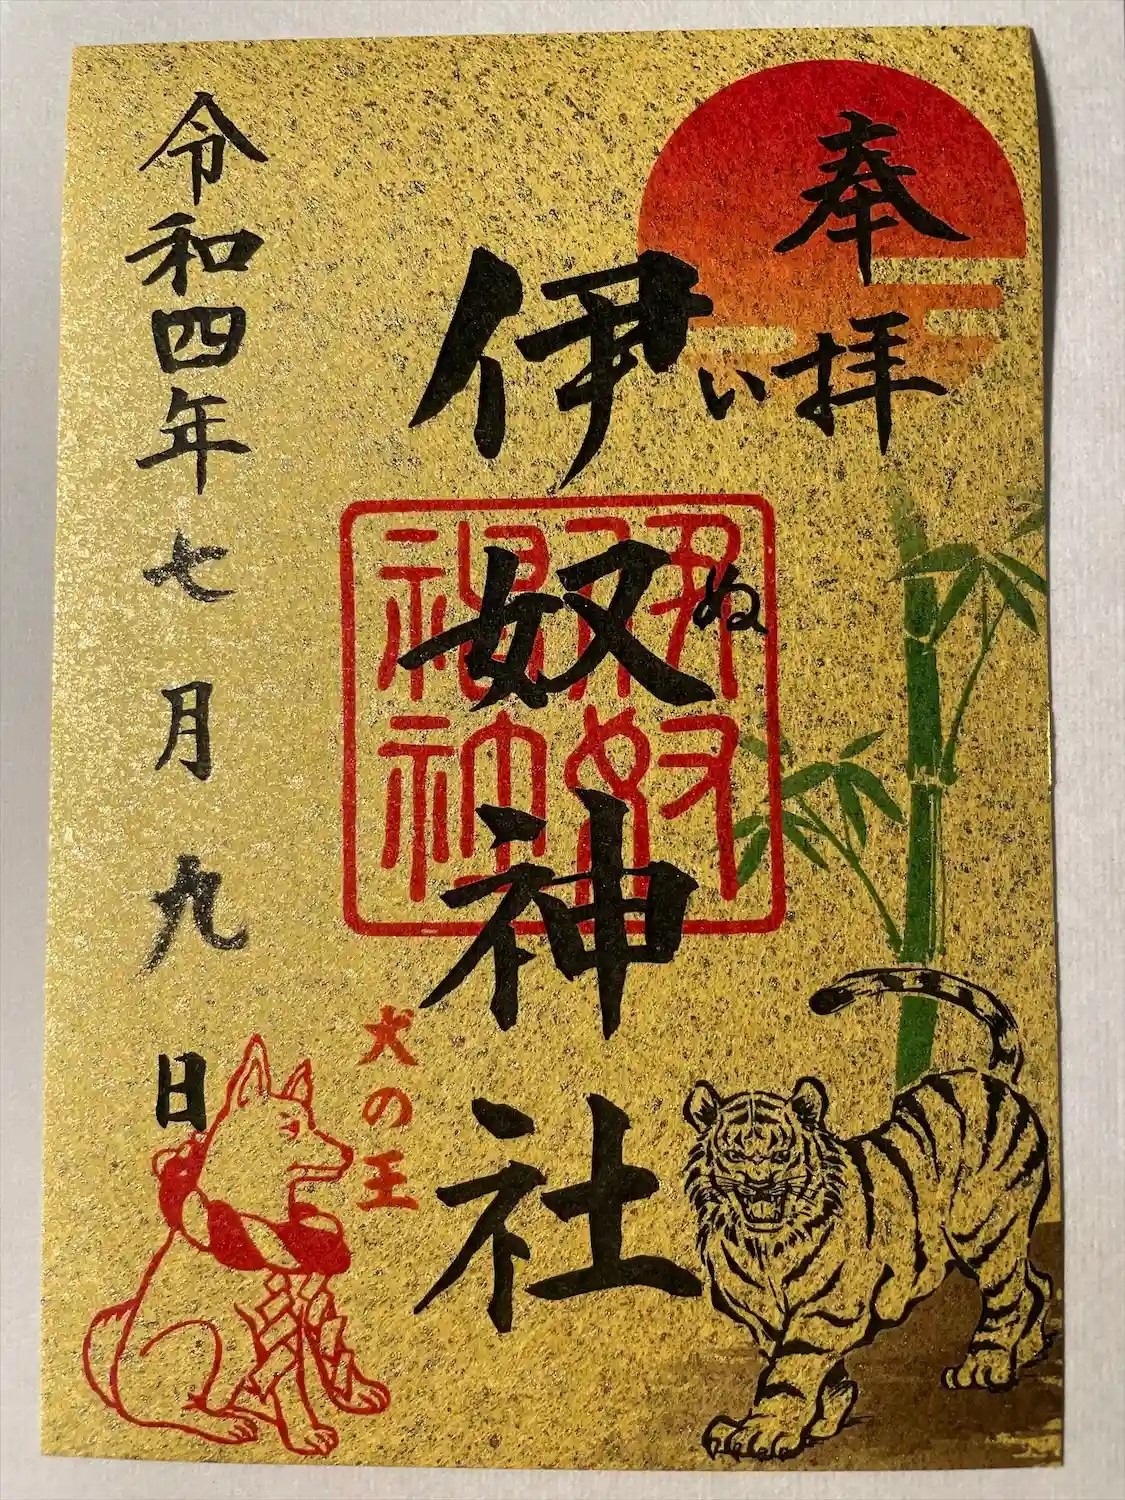 奉拝
いぬ
伊奴神社
犬の王
令和四年七月九日